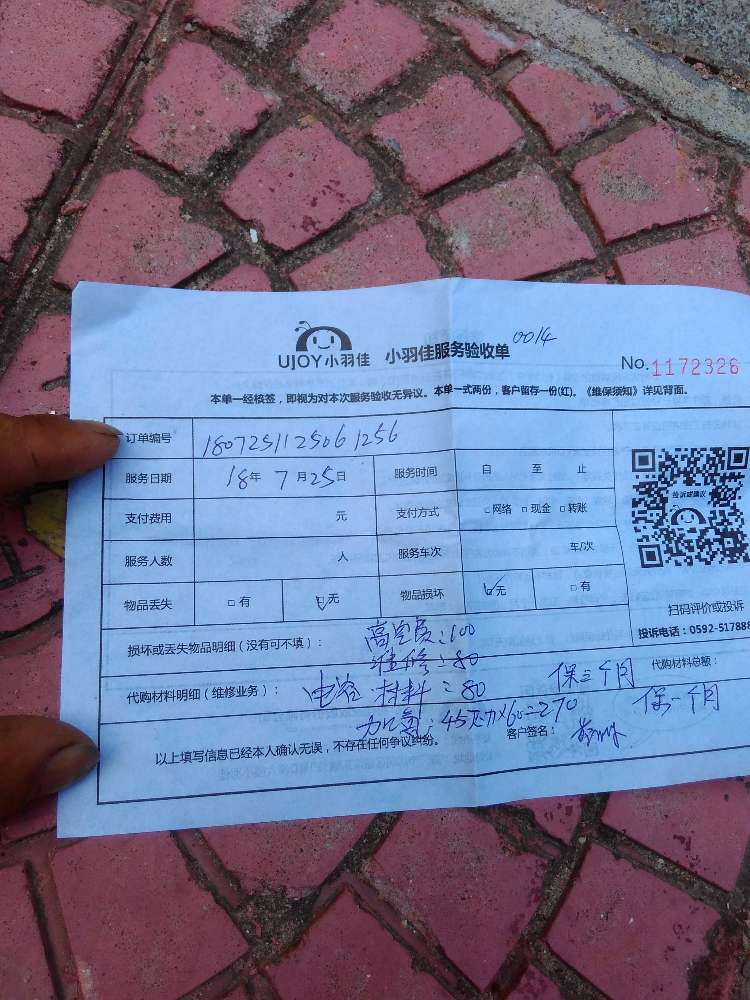 0014
UJOY小羽佳 小羽佳服务验收单 No.1172326
本单一经核签，即视为对本次服务验收无异议。本单一式两份，客户留存一份(红)。《维保须知》详见背面。
订单编号 1807251125061256
服务日期 18年 7月25日 服务时间 自 至 止
支付费用 元 支付方式 □网络 □现金 □转账
服务人数 人 服务车次 车/次
物品丢失 □有 ☑无 物品损坏 ☑无 □有
投诉或建议
扫码评价或投诉
投诉电话：0592-517888
损坏或丢失物品明细（没有可不填）： 高空费：100
维修：80
代购材料明细（维修业务）： 电容 材料：80 保三个月 代购材料总额：
加氟：4.5公斤×60=270 保一个月
以上填写信息已经本人确认无误，不存在任何争议纠纷。 客户签名：